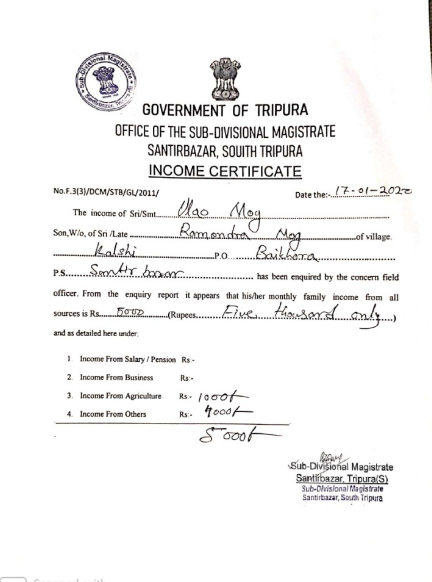 Sub-Divisional Magistrate
Santirbazar, Tripura
GOVERNMENT OF TRIPURA
OFFICE OF THE SUB-DIVISIONAL MAGISTRATE
SANTIRBAZAR, SOUITH TRIPURA
INCOME CERTIFICATE
No.F.3(3)/DCM/STB/GL/2011/ Date the:- 17-01-2022
The income of Sri/Smt. Ulao Mog
Son,W/o, of Sri /Late Ramondra Mog of village.
Kalshi P.O Baikhora
P.S. has been enquired by the concern field
officer. From the enquiry report it appears that his/her monthly family income from all
sources is Rs. 5000 (Rupees. Five thousand only.)
and as detailed here under:
1. Income From Salary / Pension Rs :-
2. Income From Business Rs:-
3. Income From Agriculture Rs:- 1000/-
4. Income From Others Rs:- 4000/-
5000/-
Sub-Divisional Magistrate
Santirbazar, Tripura(S)
Sub-Divisional Magistrate
Santirbazar, South Tripura